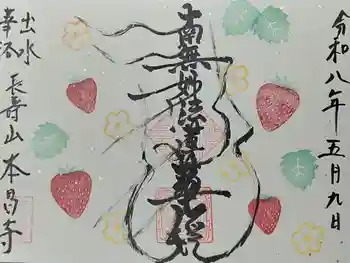 令和八年五月九日
南無妙法蓮華経
出水
幸浜
長寿山本昌寺